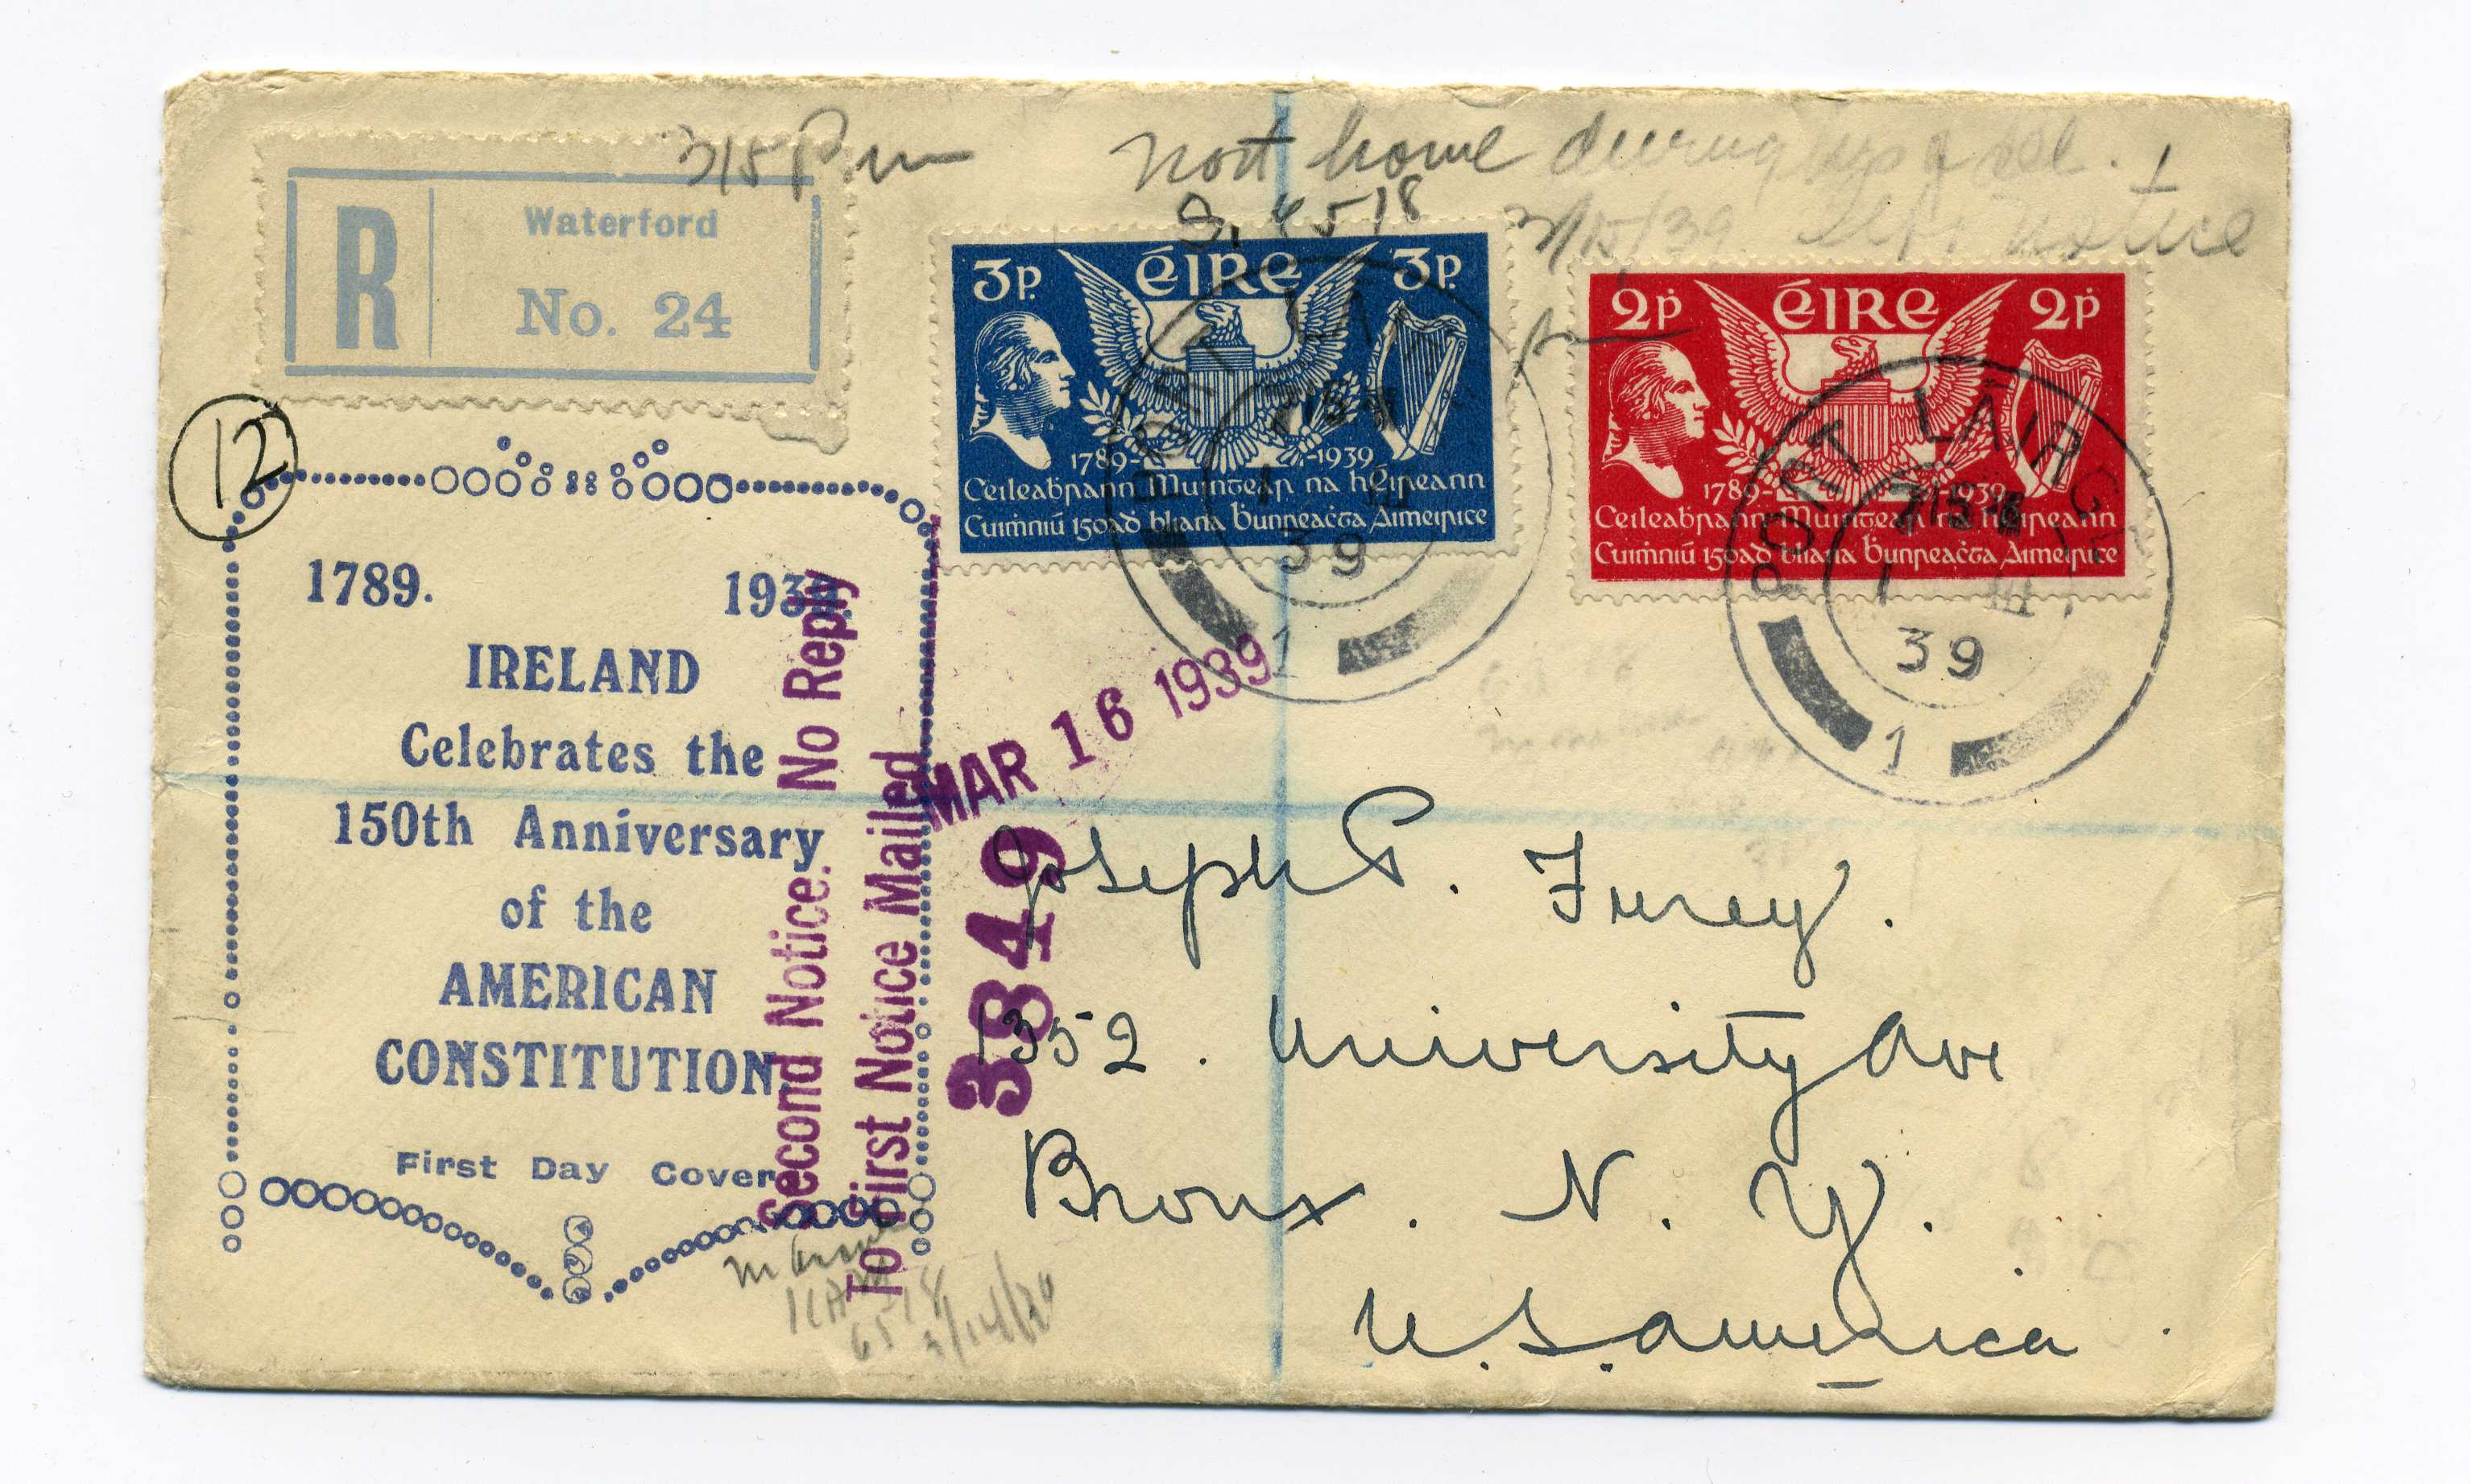 R
Waterford
No. 24
3/5 Pm
not home during
3/15/39 notice
12
3p. éIRe 3p.
1789- -1939
Ceileabrann Muintear na hÉireann
Cuiṁniú 150aḋ bliana ḃunreaċta Aimeirice
2ṗ éIRe 2ṗ
1789- -1939
Ceileabrann Muintear na hÉireann
Cuiṁniú 150aḋ bliana ḃunreaċta Aimeirice
PORT LÁI
1 III
39
1
PORT LÁIRGE
1 III
39
1
1789. 1939.
IRELAND
Celebrates the
150th Anniversary
of the
AMERICAN
CONSTITUTION
First Day Cover
Second Notice. No Reply
To First Notice Mailed
MAR 16 1939
3849
Joseph P. Furey.
1352. University Ave
Bronx. N. Y.
U. S. America
6518